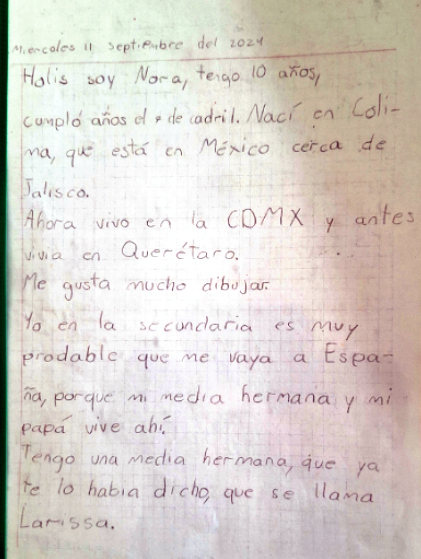 Miercoles 11 septiembre del 2024
Holis soy Nora, tengo 10 años,
cumplo años el de cadril. Nací en Coli-
ma, que está en México cerca de
Jalisco.
Ahora vivo en la CDMX y antes
vivia en Querétaro.
Me gusta mucho dibujar.
Yo en la secundaria es muy
prodable que me vaya a Espa-
ña, porque mi media hermana y mi
papá vive ahí.
Tengo una media hermana, que ya
te lo habia dicho, que se llama
Larissa.